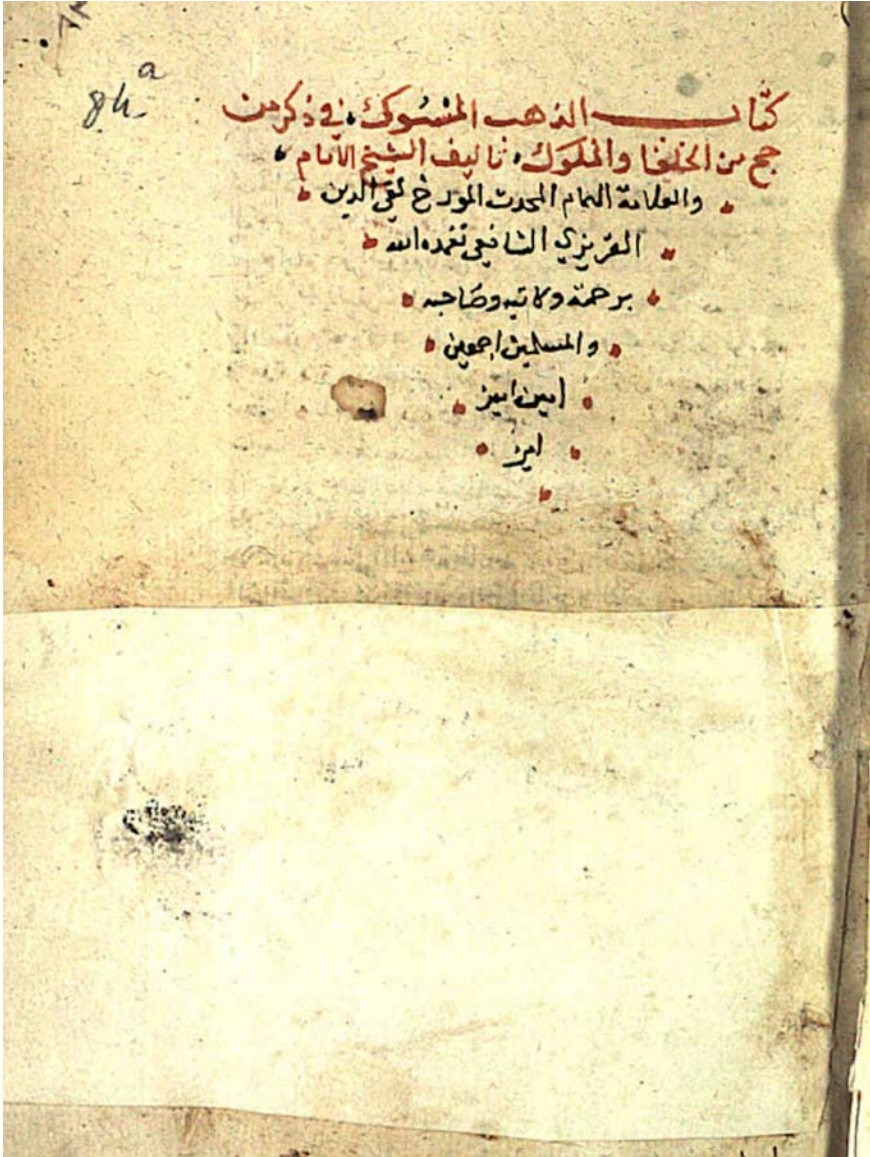 84a
كتاب الذهب المسبوك في ذكر من
حج من الخلفا والملوك تاليف الشيخ الامام
والعلامة الهمام المحدث المورخ تقي الدين
المقريزي الشافعي تغمده الله
برحمته وكاتبه وصاحبه
والمسلمين اجمعين
امين امين
امين